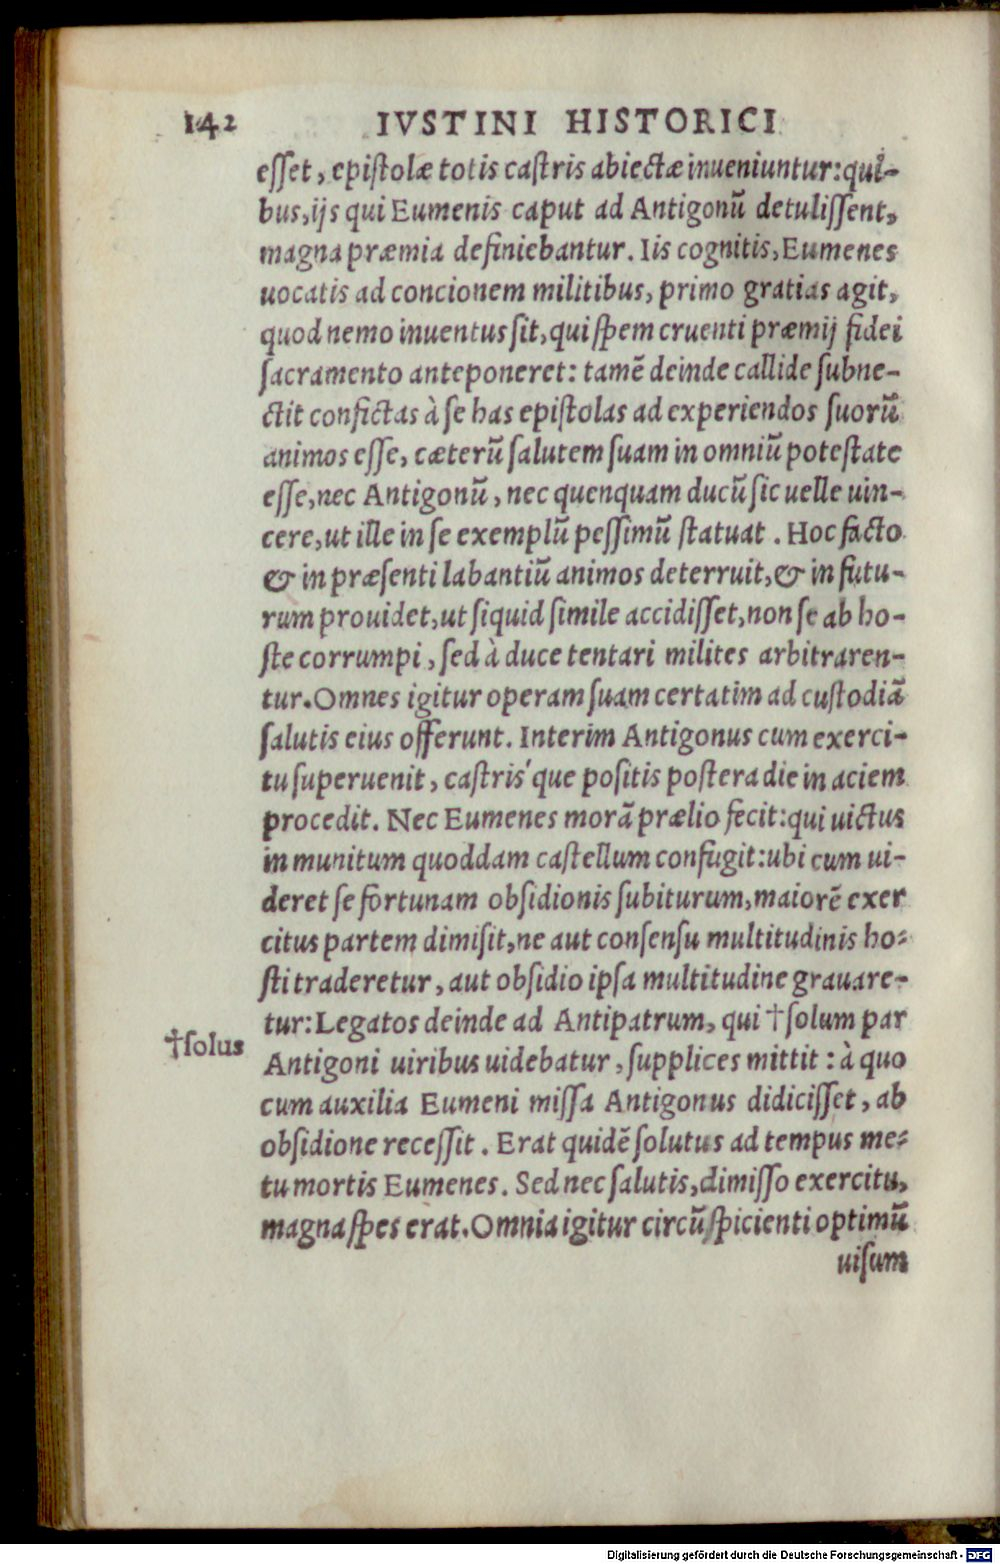 142 IVSTINI HISTORICI
esset, epistolæ totis castris abiectæ inueniuntur: qui-
bus, ijs qui Eumenis caput ad Antigonũ detulissent,
magna præmia definiebantur. Iis cognitis, Eumenes
uocatis ad concionem militibus, primo gratias agit,
quod nemo inuentus sit, qui spem cruenti præmij fidei
sacramento anteponeret: tamẽ deinde callide subne-
ctit confictas à se has epistolas ad experiendos suorũ
animos esse, cæterũ salutem suam in omniũ potestate
esse, nec Antigonũ, nec quenquam ducũ sic uelle uin-
cere, ut ille in se exemplũ pessimũ statuat. Hoc facto
& in præsenti labantiũ animos deterruit, & in futu-
rum prouidet, ut siquid simile accidisset, non se ab ho-
ste corrumpi, sed à duce tentari milites arbitraren-
tur. Omnes igitur operam suam certatim ad custodiã
salutis eius offerunt. Interim Antigonus cum exerci-
tu superuenit, castris'que positis postera die in aciem
procedit. Nec Eumenes morã prælio fecit: qui uictus
in munitum quoddam castellum confugit: ubi cum ui-
deret se fortunam obsidionis subiturum, maiorẽ exer
citus partem dimisit, ne aut consensu multitudinis ho-
sti traderetur, aut obsidio ipsa multitudine grauare-
tur: Legatos deinde ad Antipatrum, qui †solum par
†solus
Antigoni uiribus uidebatur, supplices mittit: à quo
cum auxilia Eumeni missa Antigonus didicisset, ab
obsidione recessit. Erat quidẽ solutus ad tempus me-
tu mortis Eumenes. Sed nec salutis, dimisso exercitu,
magna spes erat. Omnia igitur circũspicienti optimũ
uisum
Digitalisierung gefördert durch die Deutsche Forschungsgemeinschaft - DFG